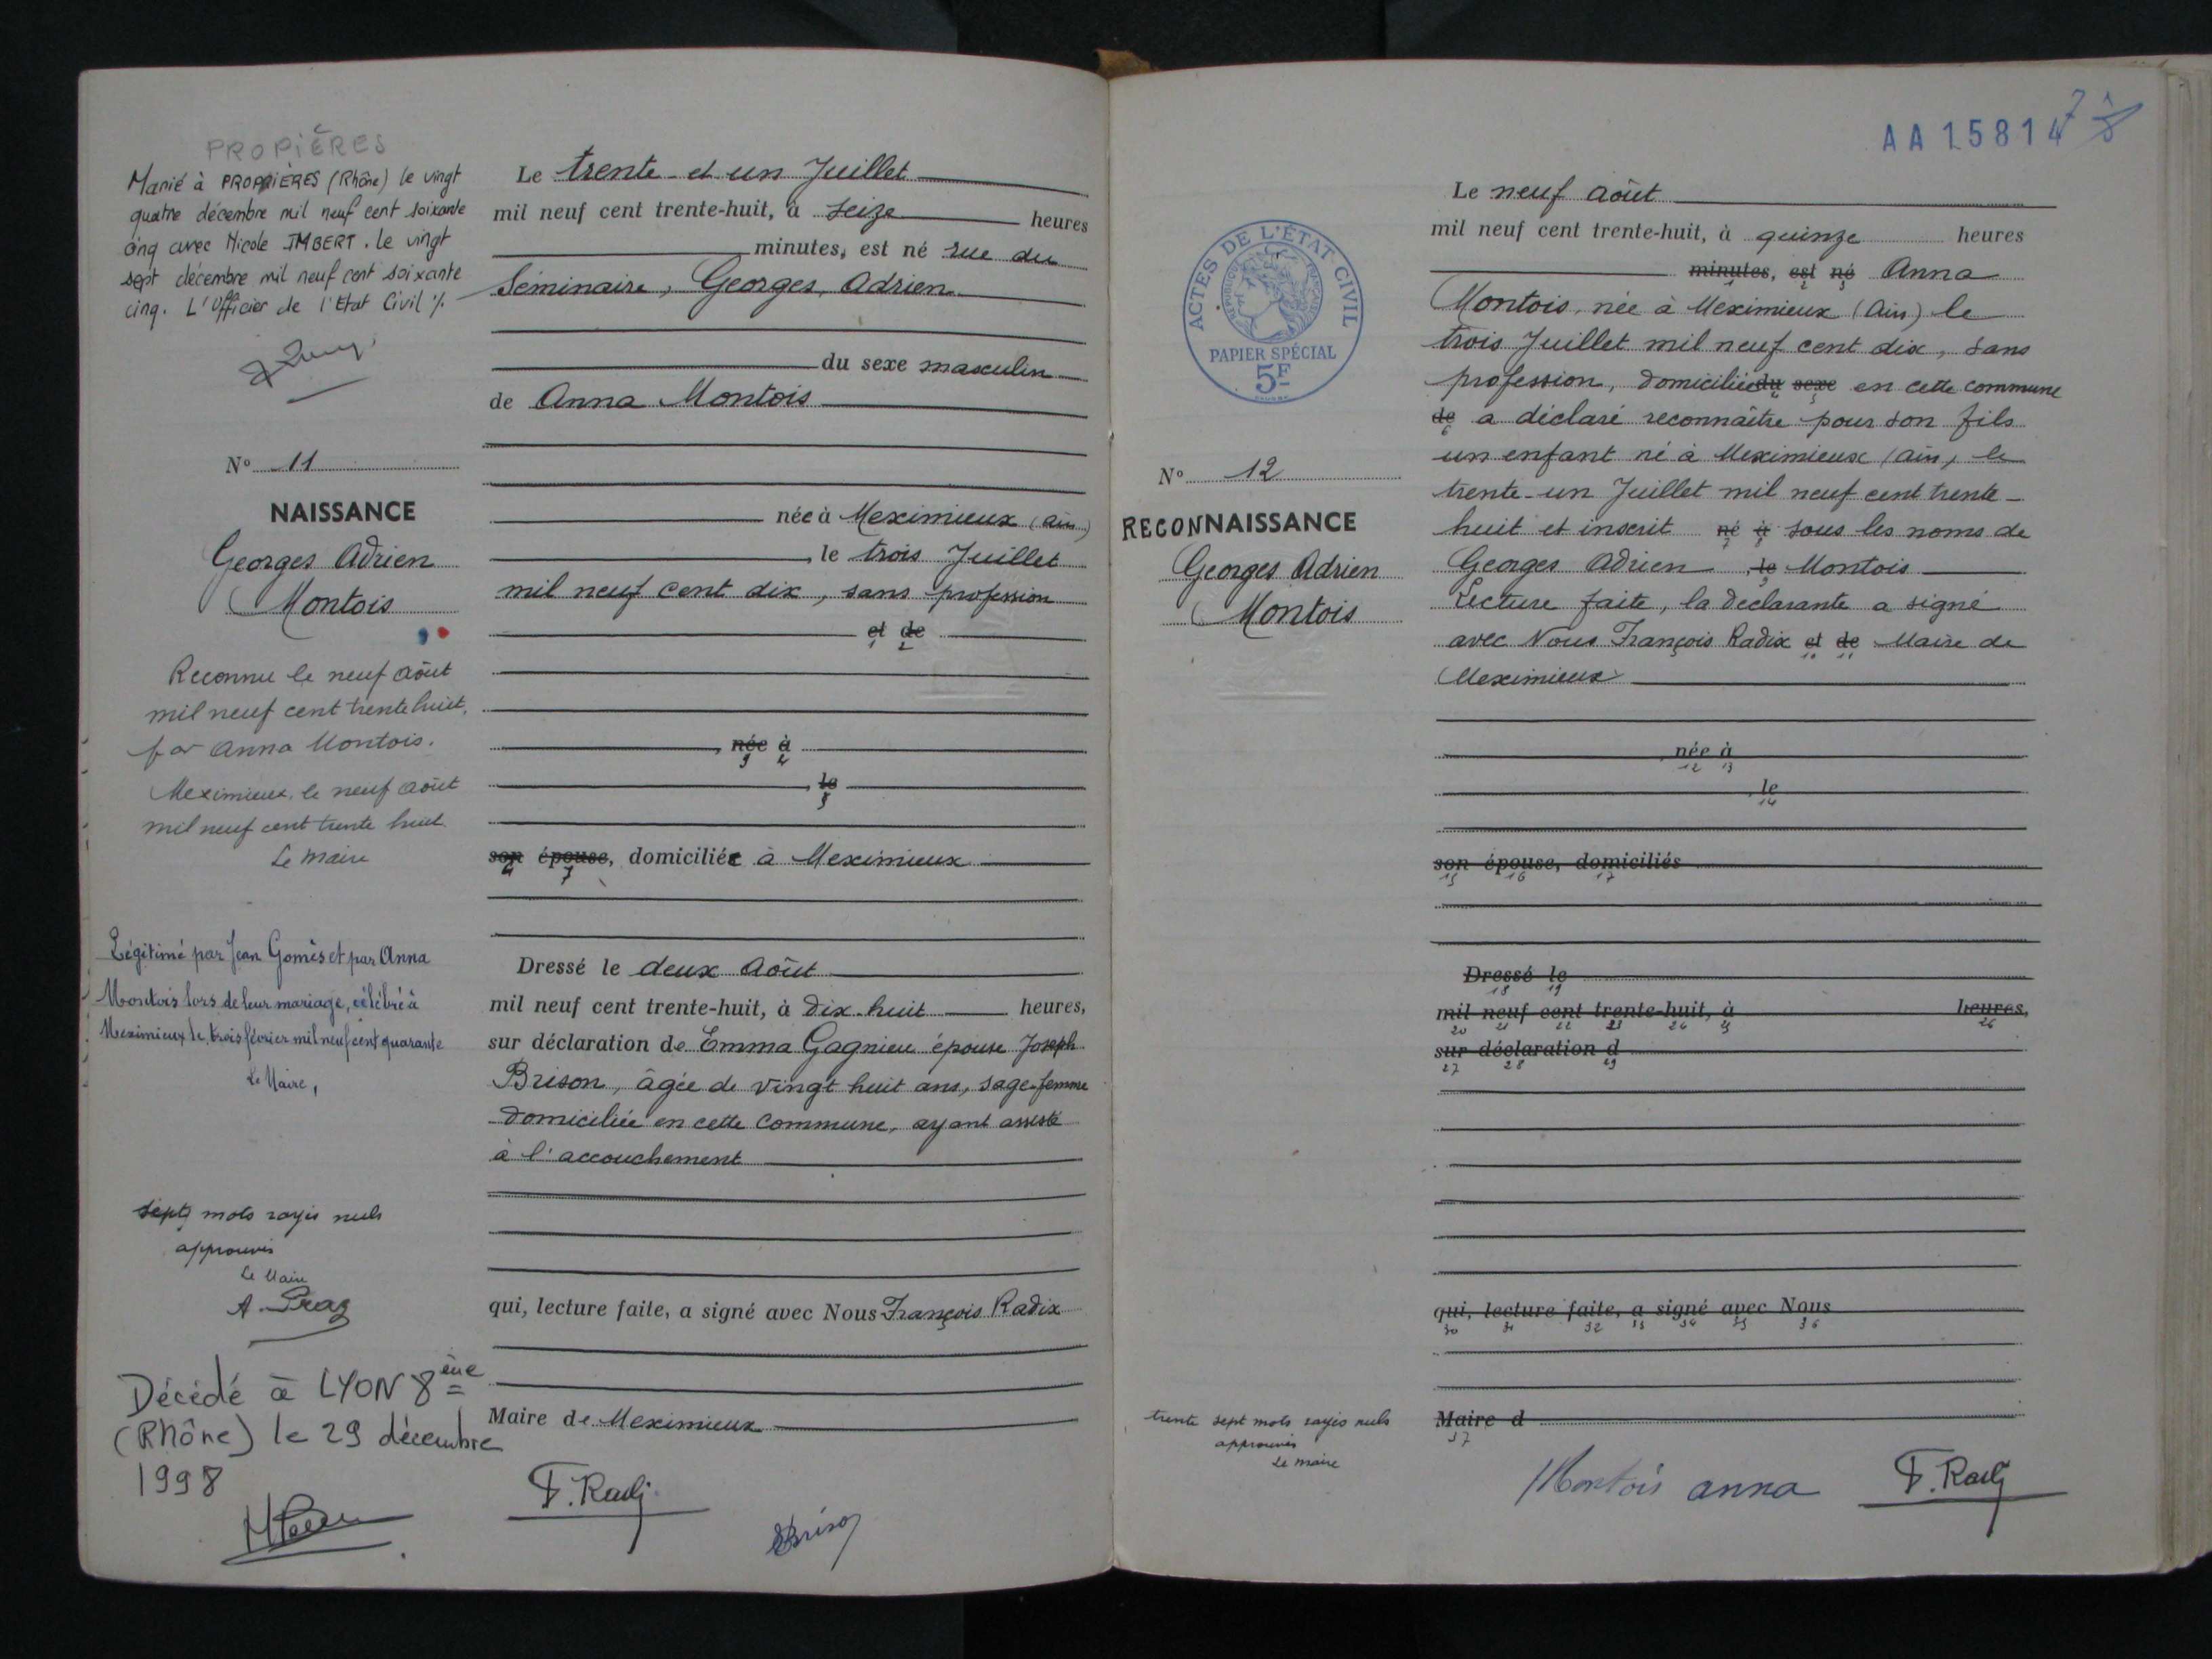 PROPIÈRES
Marié à PROPIÈRES (Rhône) le vingt
quatre décembre mil neuf cent soixante
cinq avec Nicole IMBERT. Le vingt
sept décembre mil neuf cent soixante
cinq. L'Officier de l'Etat Civil %.
N° 11
NAISSANCE
Georges Adrien
Montois
Reconnu le neuf août
mil neuf cent trente huit,
par Anna Montois.
Meximieux, le neuf août
mil neuf cent trente huit
Le Maire
Légitimé par Jean Gomès et par Anna
Montois lors de leur mariage, célébré à
Meximieux le trois février mil neuf cent quarante
Le Maire,
sept mots rayés nuls
approuvés
Le Maire
A. Praz
Décédé à LYON 8ème
(Rhône) le 29 décembre
1998
Le trente-et-un Juillet
mil neuf cent trente-huit, à seize heures
minutes, est né rue du
Séminaire, Georges, Adrien
du sexe masculin
de Anna Montois
née à Meximieux (Ain)
, le trois Juillet
mil neuf cent dix, sans profession
et de
1 2
, née à
3 4
, le
5
son épouse, domiciliée à Meximieux
6 7
Dressé le deux Août
mil neuf cent trente-huit, à dix-huit heures,
sur déclaration de Emma Gagnieu épouse Joseph
Brison, âgée de vingt huit ans, sage-femme
domiciliée en cette commune, ayant assisté
à l'accouchement
qui, lecture faite, a signé avec Nous François Radix
Maire de Meximieux
F. Radix
EBrison
AA 15814 7
ACTES DE L'ÉTAT CIVIL
RÉPUBLIQUE FRANÇAISE
PAPIER SPÉCIAL
5F
N° 12
RECONNAISSANCE
Georges Adrien
Montois
trente sept mots rayés nuls
approuvés
Le Maire
Le neuf août
mil neuf cent trente-huit, à quinze heures
minutes, est né Anna
1 2 3
Montois, née à Meximieux (Ain) le
trois Juillet mil neuf cent dix, sans
profession, domiciliée du sexe en cette commune
4 5
de a déclaré reconnaître pour son fils
6
un enfant né à Meximieux (Ain), le
trente-un Juillet mil neuf cent trente-
huit et inscrit né à sous les noms de
7 8
Georges Adrien , le Montois
9
Lecture faite, la déclarante a signé
avec Nous François Radix et de Maire de
10 11
Meximieux
, née à
12 13
, le
14
son épouse, domiciliés
15 16 17
Dressé le
18 19
mil neuf cent trente-huit, à heures,
20 21 22 23 24 25 26
sur déclaration d
27 28 29
qui, lecture faite, a signé avec Nous
30 31 32 33 34 35 36
Maire d
37
Montois anna
F. Radix